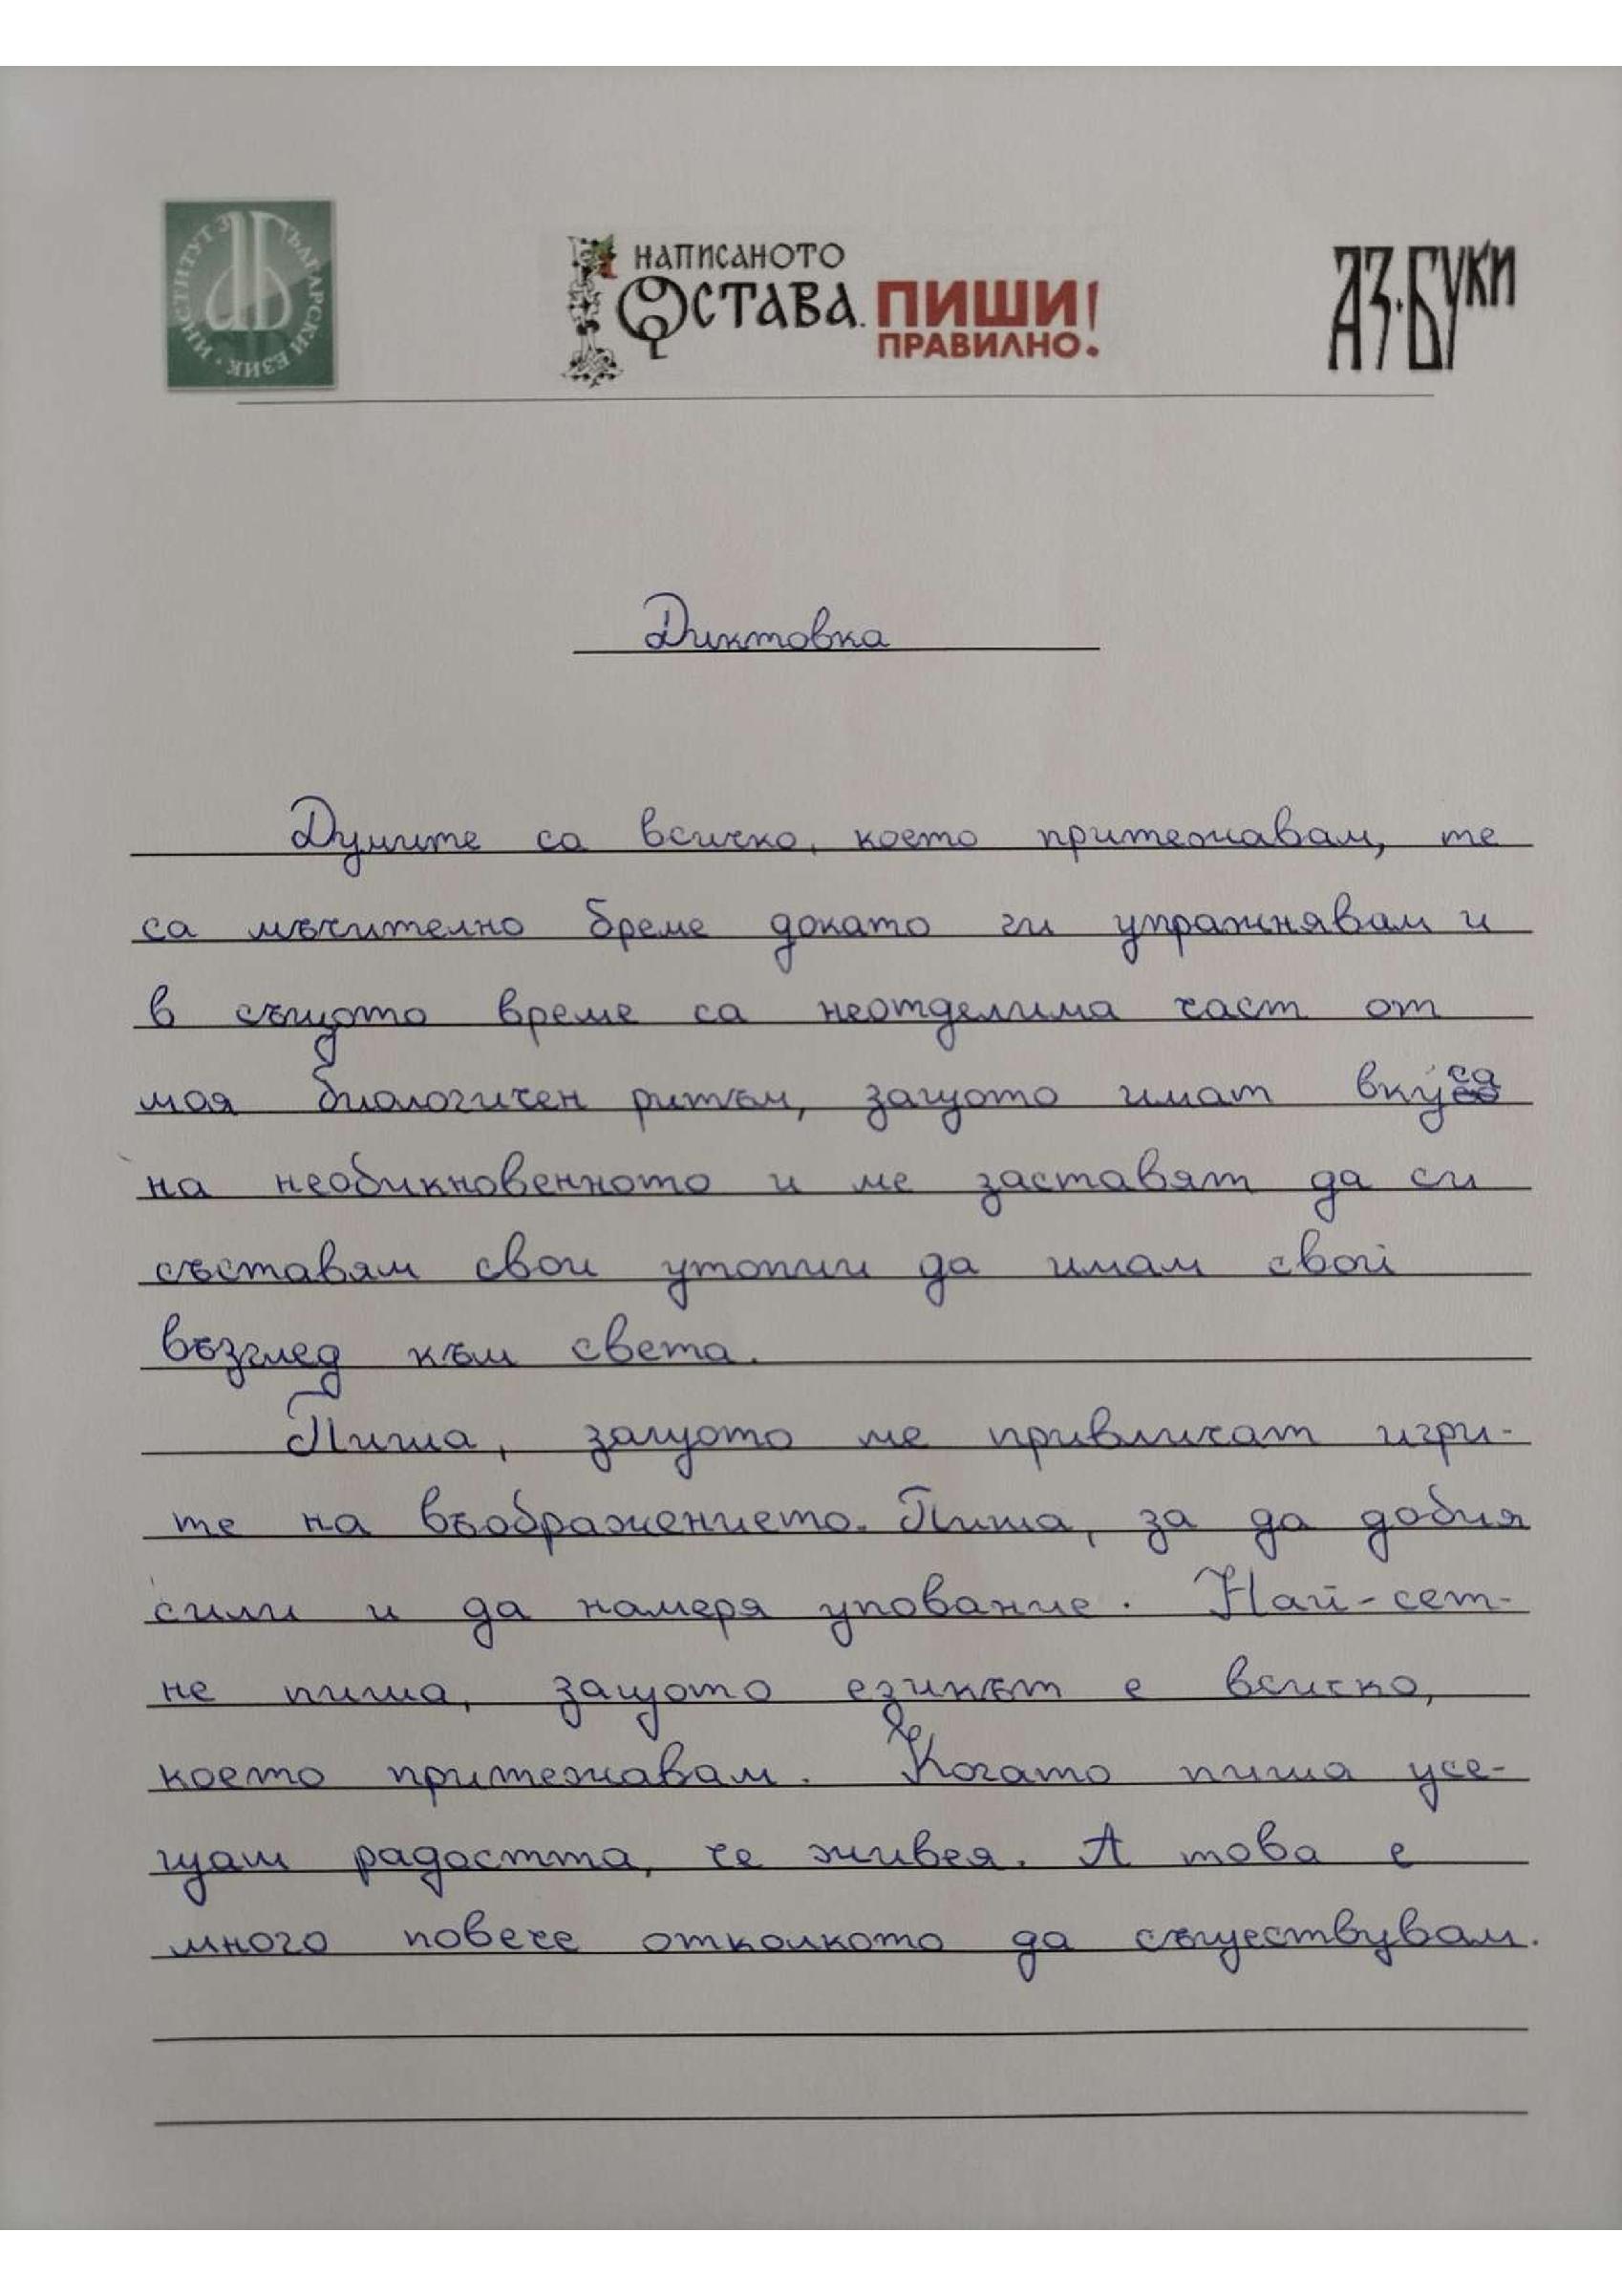 ИНСТИТУТ ЗА БЪЛГАРСКИ ЕЗИК
НАПИСАНОТО
ОСТАВА. ПИШИ
ПРАВИЛНО!
АЗ·БУКИ
Диктовка
Думите са всичко, което притежавам, те
са мъчително бреме докато ги упражнявам и
в същото време са неотделима част от
моя биологичен ритъм, защото имат вкуса
на необикновенното и ме заставят да си
съставям свои утопии да имам свой
възглед към света.
Пиша, защото ме привличат игри-
те на въображението. Пиша, за да добия
сили и да намеря упование. Най-сет-
не пиша, защото езикът е всичко,
което притежавам. Когато пиша усе-
щам радостта, че живея. А това е
много повече отколкото да съществувам.